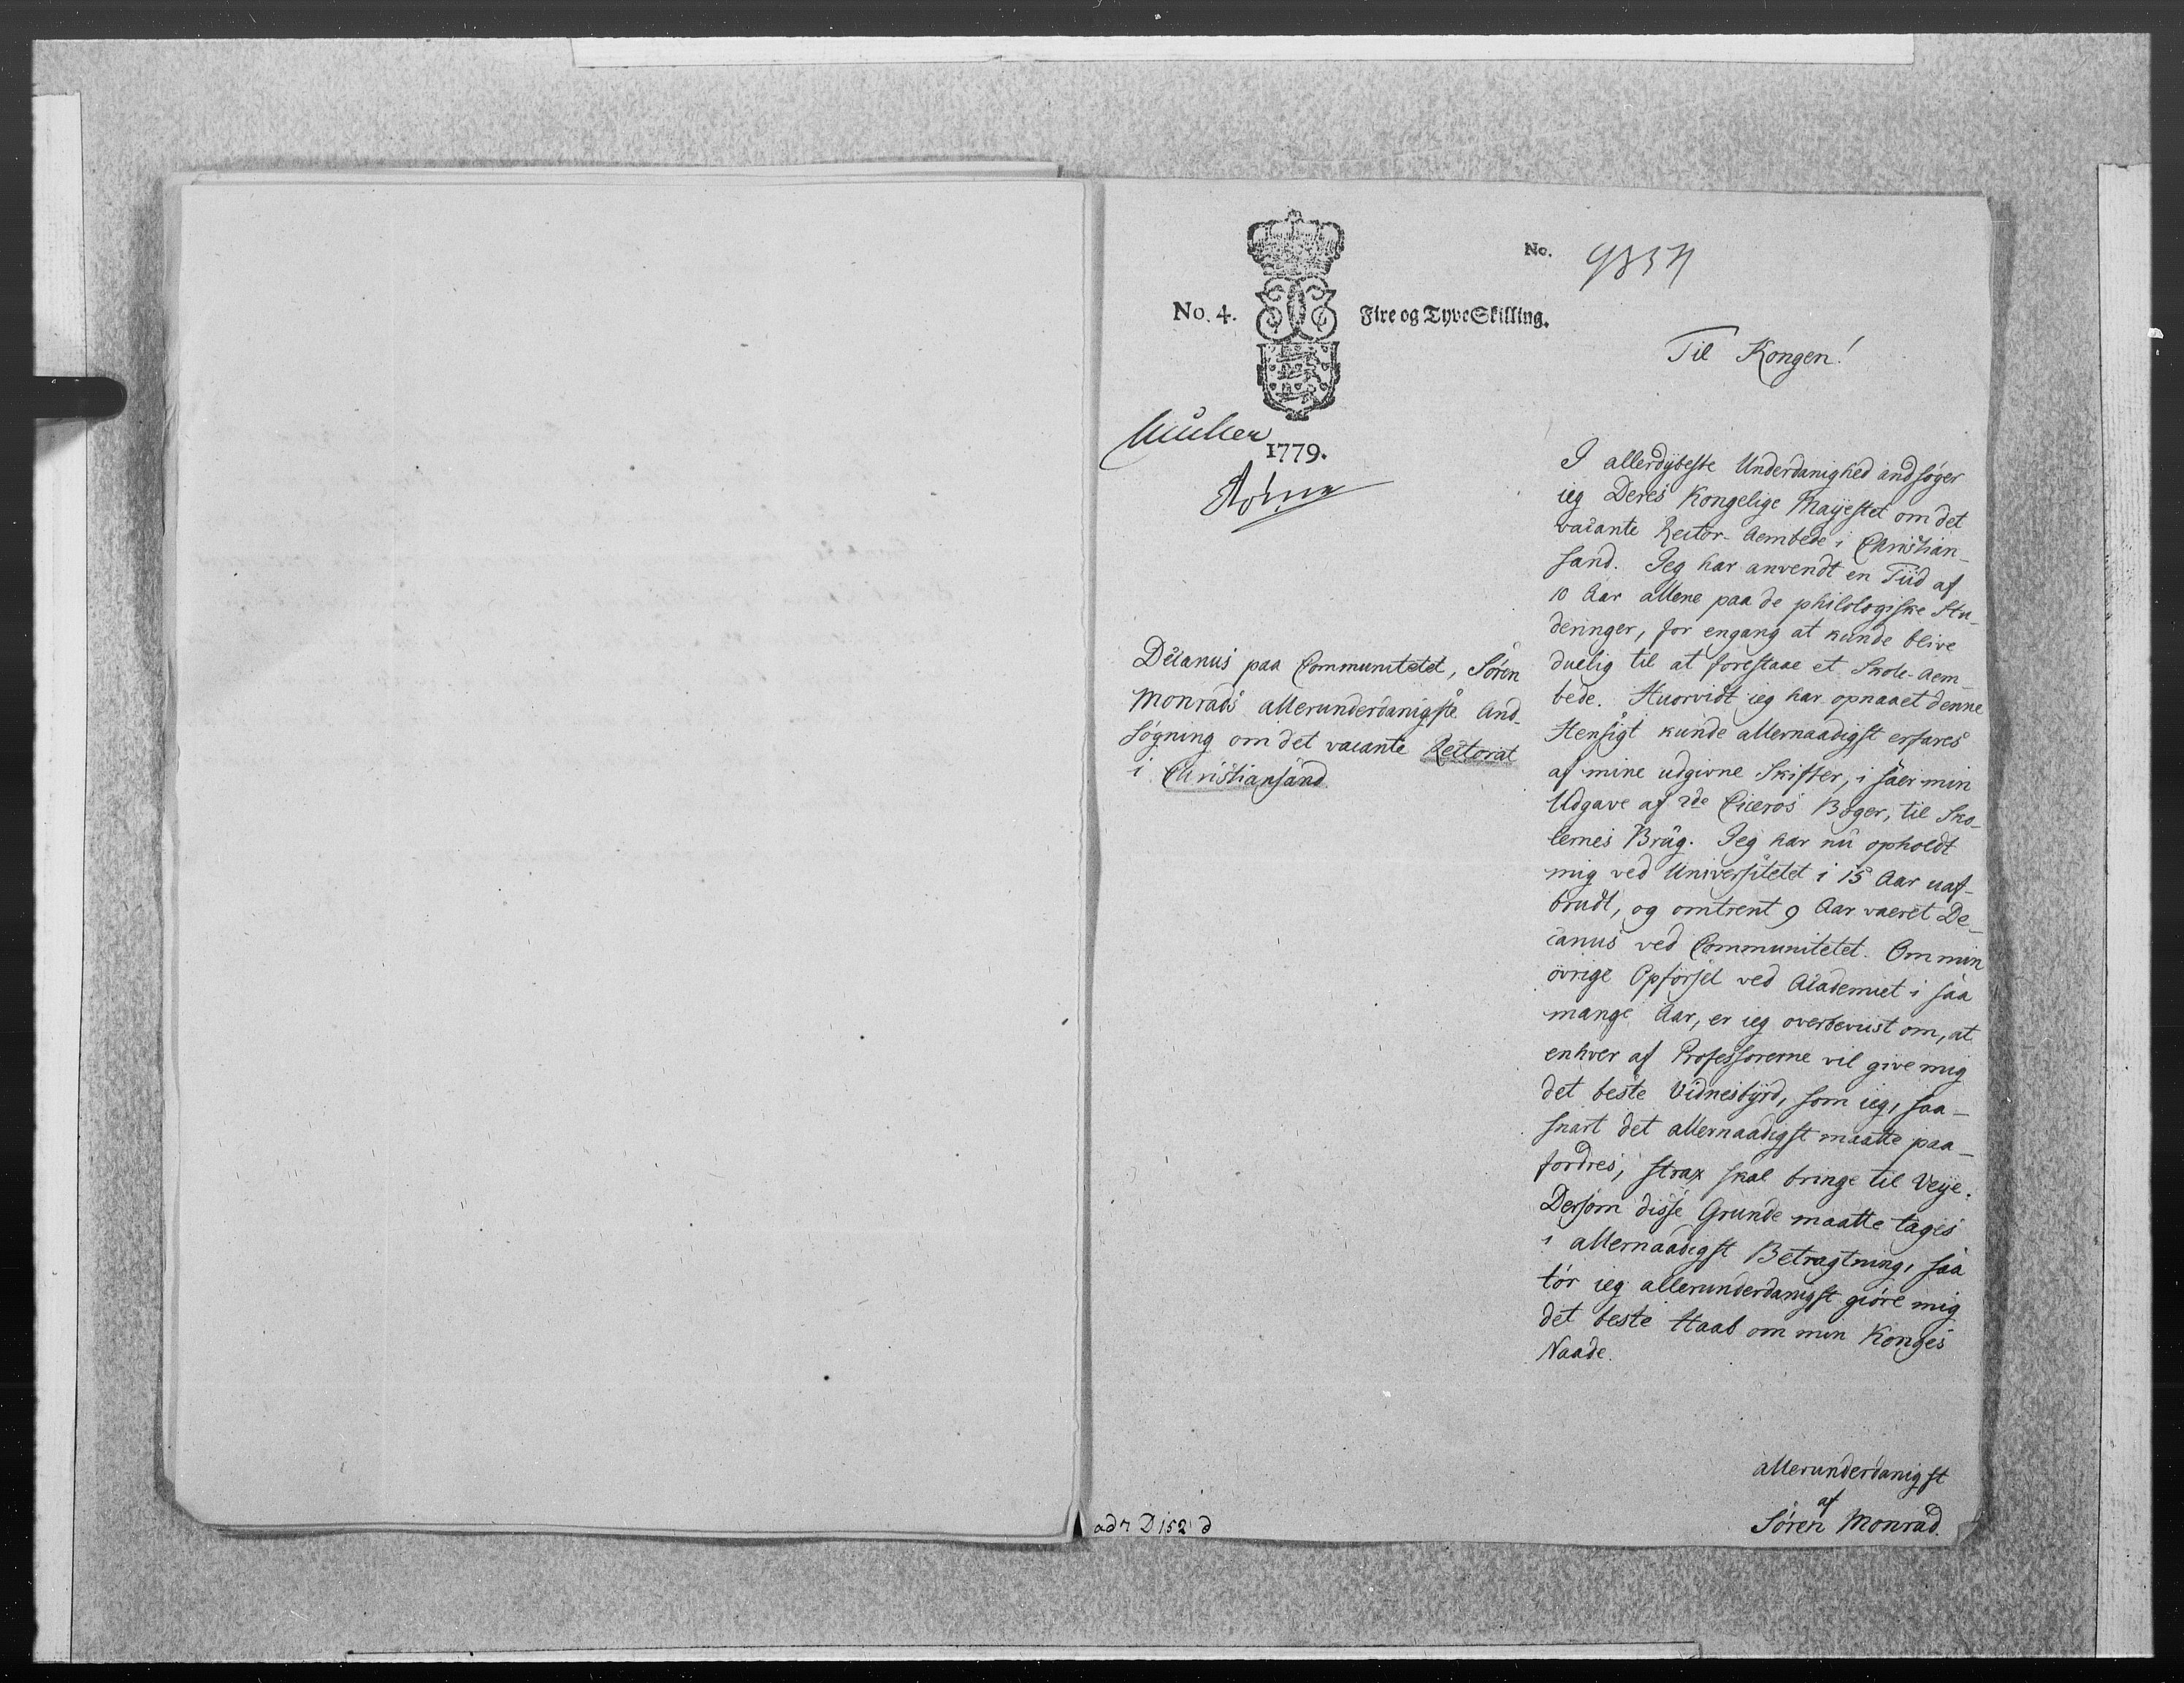 No.
No. 4. Fire og Tyve Skilling.
Til Kongen!
1779.
I allerdybeste Underdanighed andsøger
ieg Deres Kongelige Mayestet om det
vacante Rector-Aembede i Christian-
sand. Jeg har anvendt en Tiid af
10 Aar allene paa de philologiske Stu-
deringer, for engang at kunde blive
duelig til at forestaae et Skole-Aem-
bede. Huorvidt ieg har opnaaet denne
Hensigt kunde allernaadigst erfares
af mine udgivne Skifter, i sær min
Udgave af 2de Ciceros Bøger, til Sko-
lernes Brug. Jeg har nu opholdt
mig ved Universitetet i 15 Aar uaf-
brudt, og omtrent 9 Aar været De-
canus ved Communitetet. Om min
övrige Opförsel ved Academiet i saa
mange Aar, er ieg overbeviist om, at
enhver af Professorerne vil give mig
det beste Vidnesbyrd, som ieg, saa-
snart det allernaadigst maatte paa-
fordres, strax skal bringe til Veye.
Dersom disse Grunde maatte tages
i allernaadigst Betragtning, saa
tör ieg allerunderdanigst giöre mig
det beste Haab om min Konges
Naade.
Decanus paa Communitetet, Sören
Monrads allerunderdanigste And-
søgning om det vacante Rectorat
i Christiansand.
allerunderdanigst
af
Sören Monrad.
ad 7 D 152 d